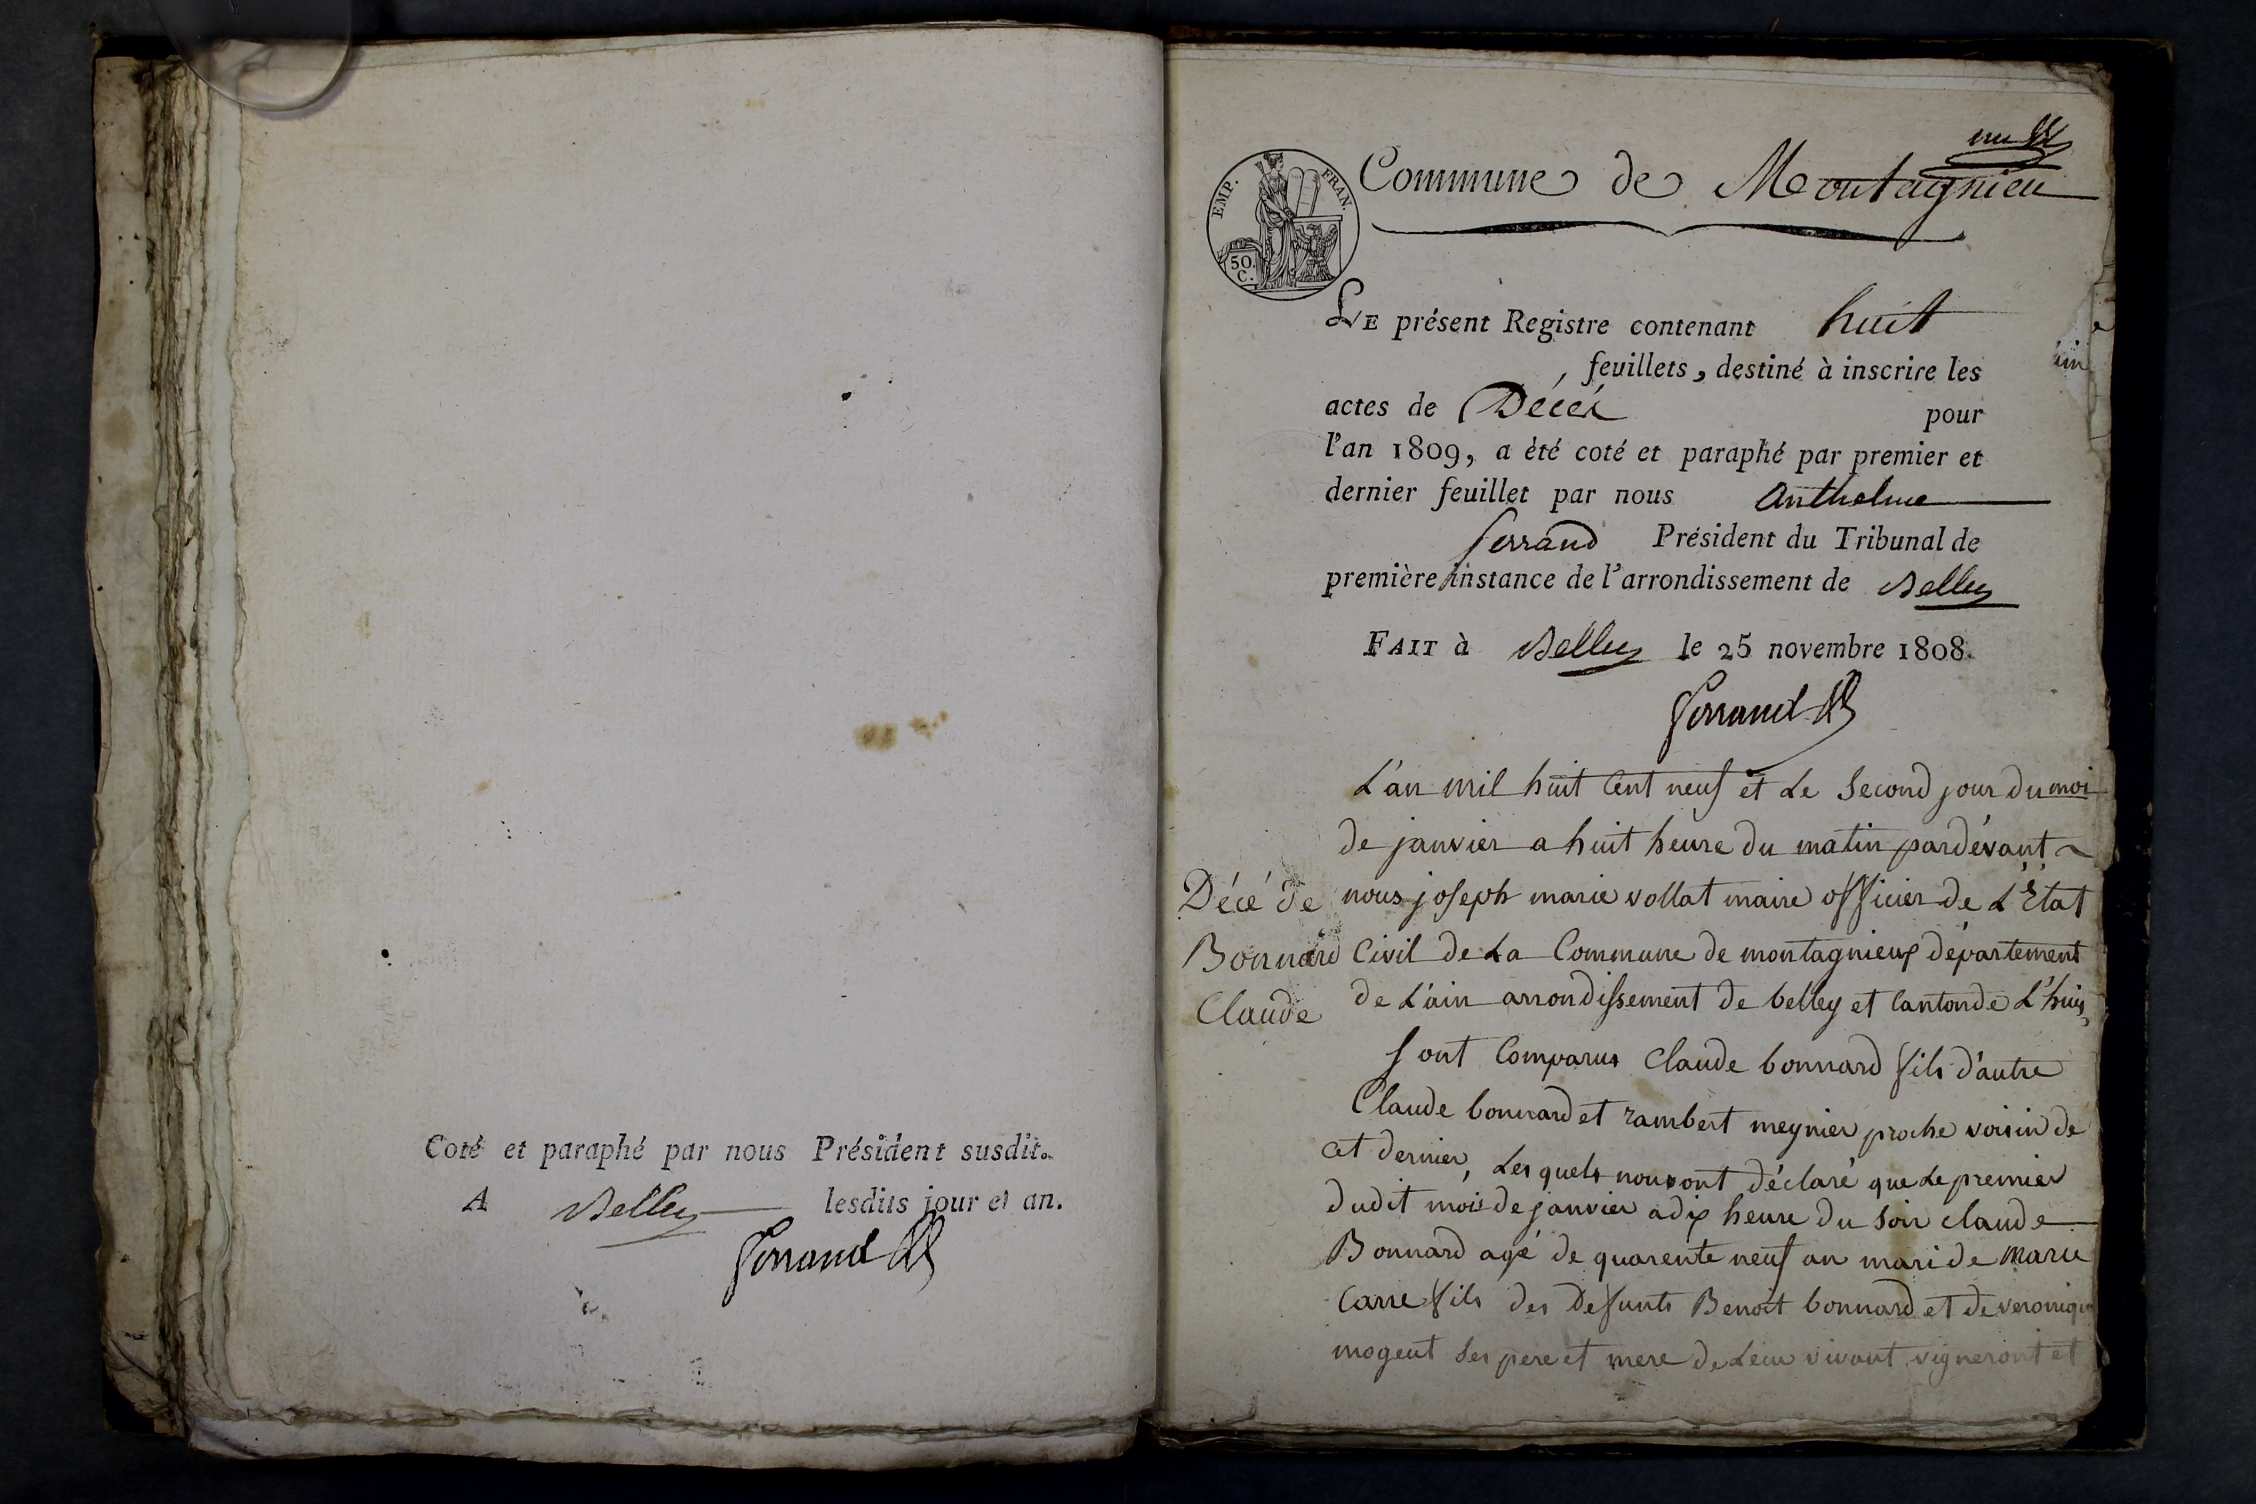 Coté et paraphé par nous Président susdit.
A Belley lesdits jour et an.
Ferrand
EMP. FRAN.
50 C.
Commune de Montagnieu
LE présent Registre contenant huit
feuillets, destiné à inscrire les
actes de Décés pour
l'an 1809, a été coté et paraphé par premier et
dernier feuillet par nous Anthelme
ferrand Président du Tribunal de
première instance de l'arrondissement de Belley
FAIT à Belley le 25 novembre 1808.
Ferrand
Décé de
Bonnard
Claude
L'an mil huit Cent neuf et Le Second jour du moi
de janvier a huit heure du matin pardévant
nous joseph marie vollat maire officier de L'État
Civil de La Commune de montagnieux département
de L'ain arrondissement de belley et Canton de L'huis
sont Comparus Claude bonnard fils d'autre
Claude bonnard et rambert meynier proche voisin de
cet dernier, Les quels nous ont déclaré que Le premier
dudit mois de janvier a dix heure du soir claude
Bonnard agé de quarente neuf an mari de Marie
Carre fils des Defunts Benoit bonnard et de veronique
mogeut ses pere et mere de Leur vivant vigneront et